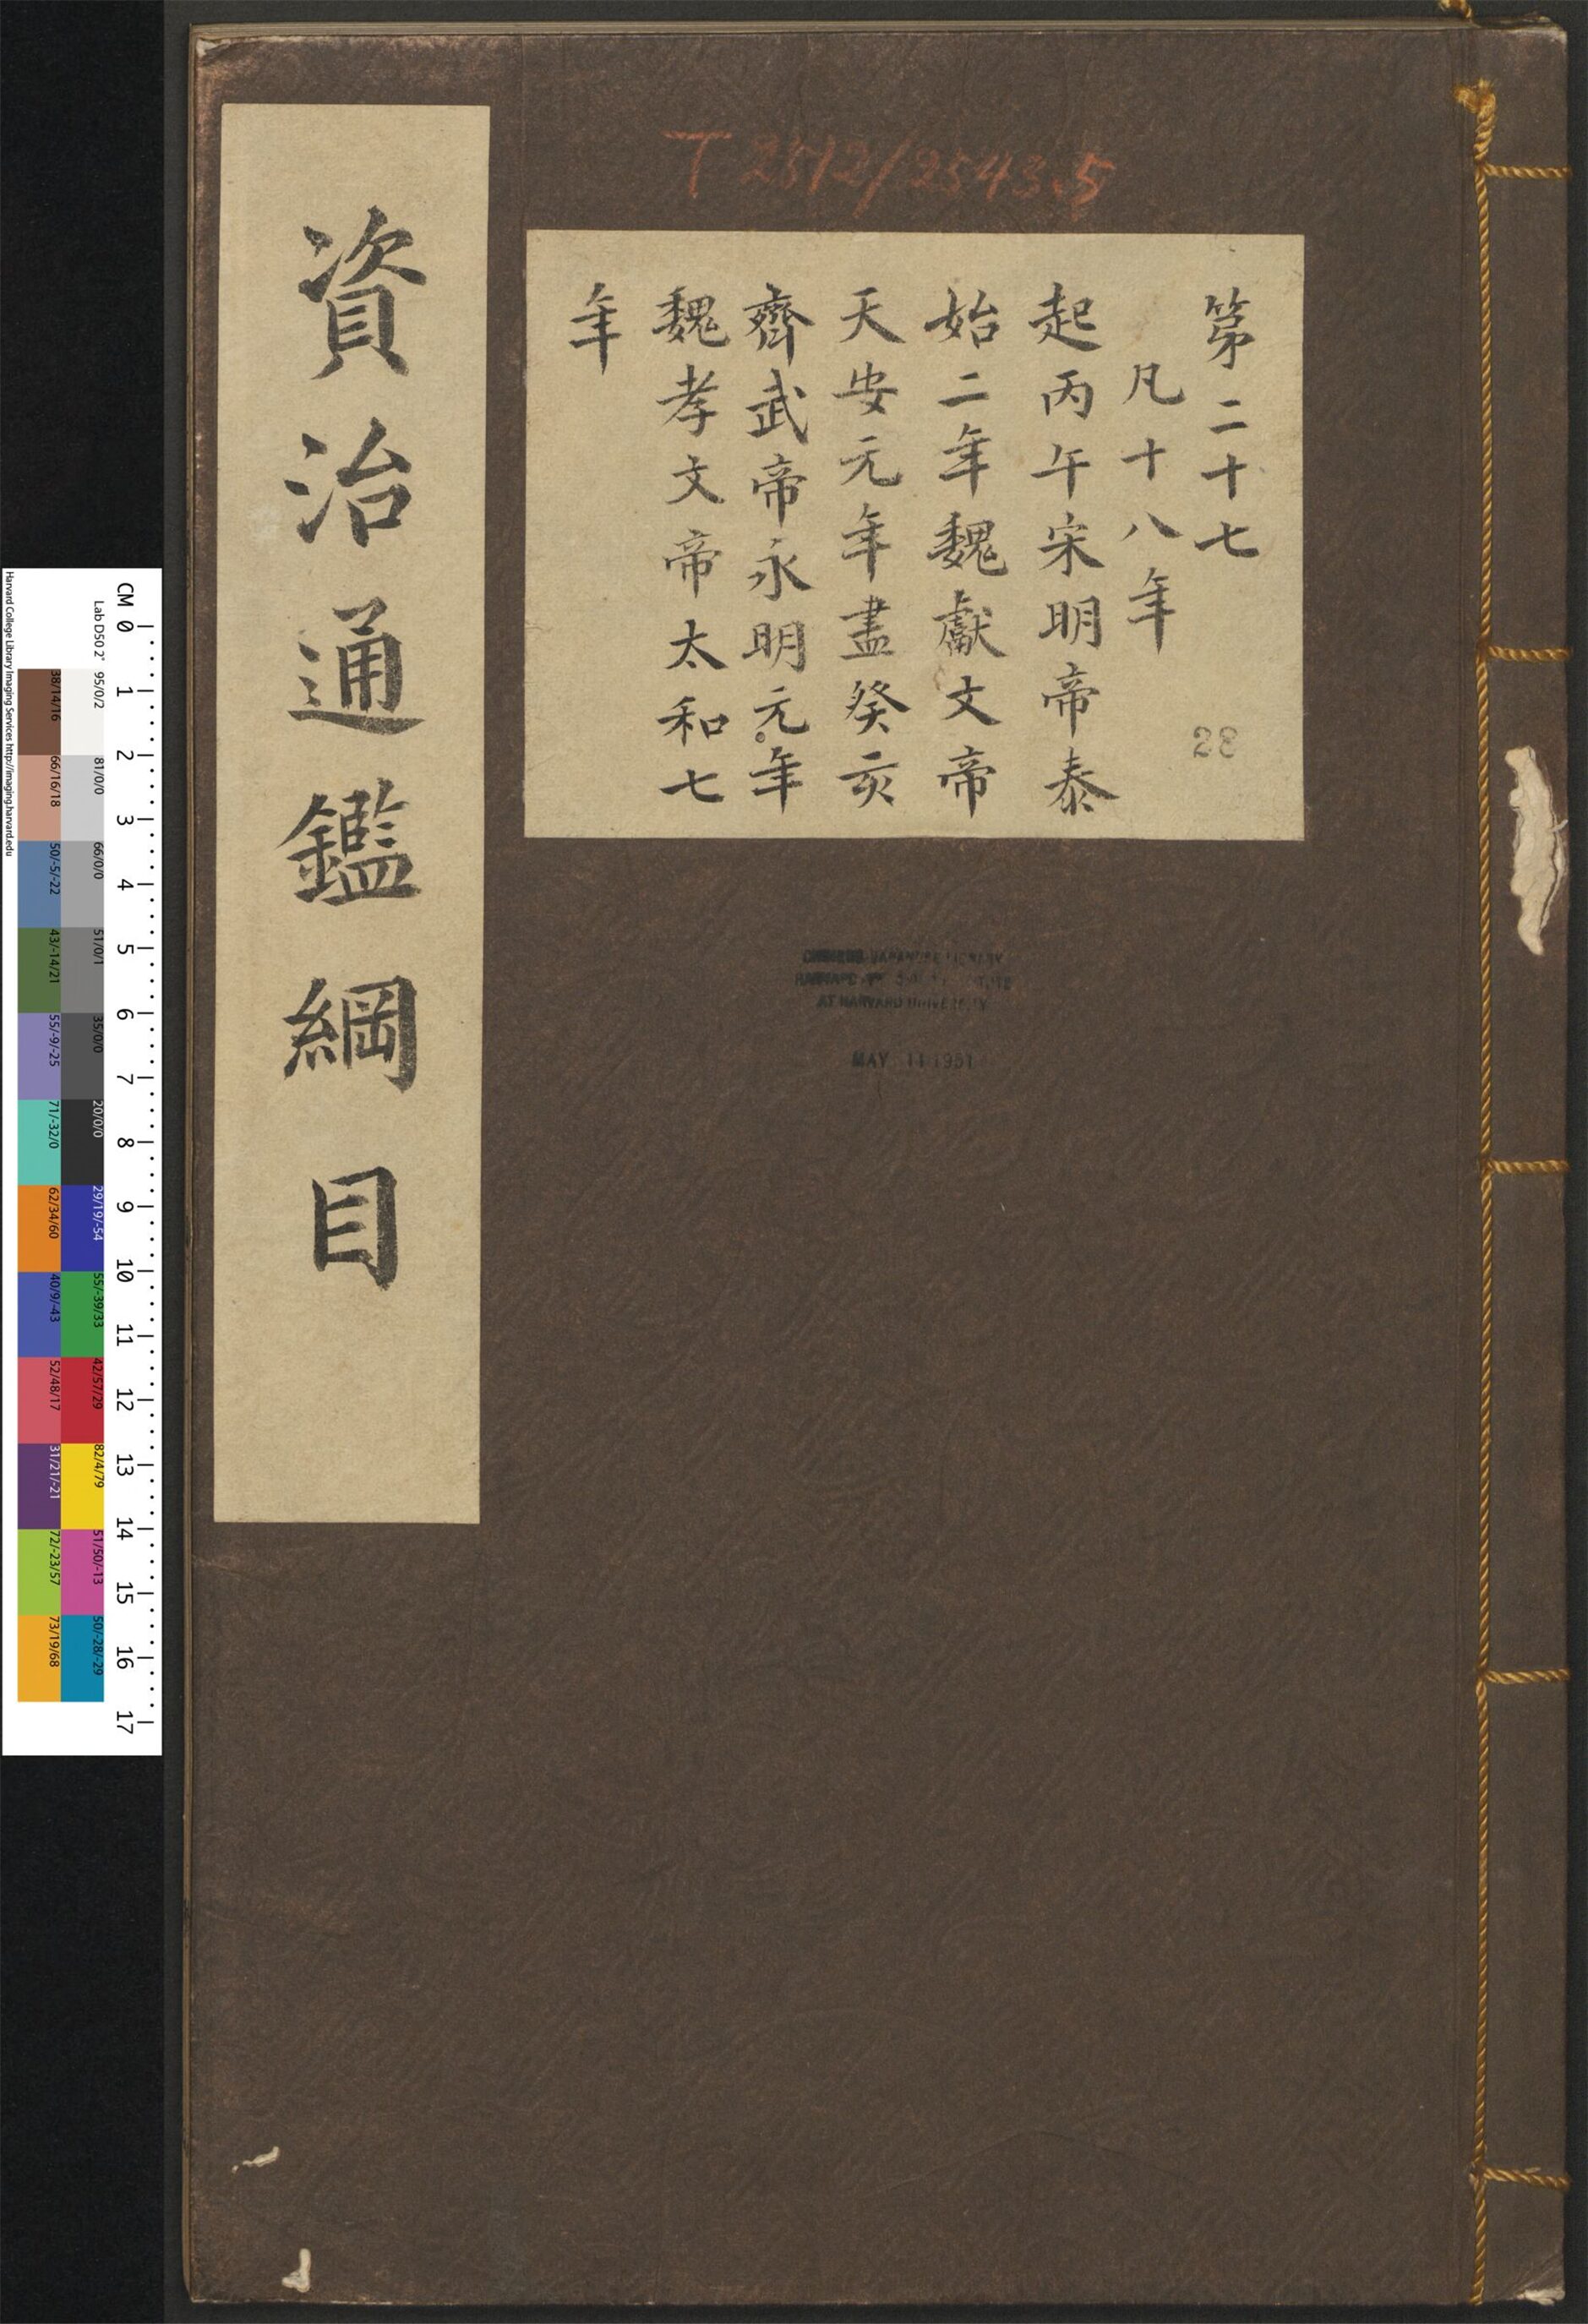 T 2512/2543.5
第二十七
凡十八年
起丙午宋明帝泰
始二年魏獻文帝
天安元年盡癸亥
齊武帝永明元年
魏孝文帝太和七
年
28
資治通鑑綱目
CHINESE-JAPANESE LIBRARY
HARVARD
AT HARVARD UNIVERSITY
MAY 11 1951
CM 0 1 2 3 4 5 6 7 8 9 10 11 12 13 14 15 16 17
Lab D50 2° 95/0/2 81/0/0 66/0/0 51/0/1 35/0/0 20/0/0 29/19/-54 55/-39/33 42/57/29 82/4/79 51/50/-13 50/-28/-29
38/14/16 66/16/18 50/-5/-22 43/-14/21 55/-9/-25 71/-32/0 62/34/60 40/9/-43 52/48/17 31/21/-21 72/-23/57 73/19/68
Harvard College Library Imaging Services http://imaging.harvard.edu